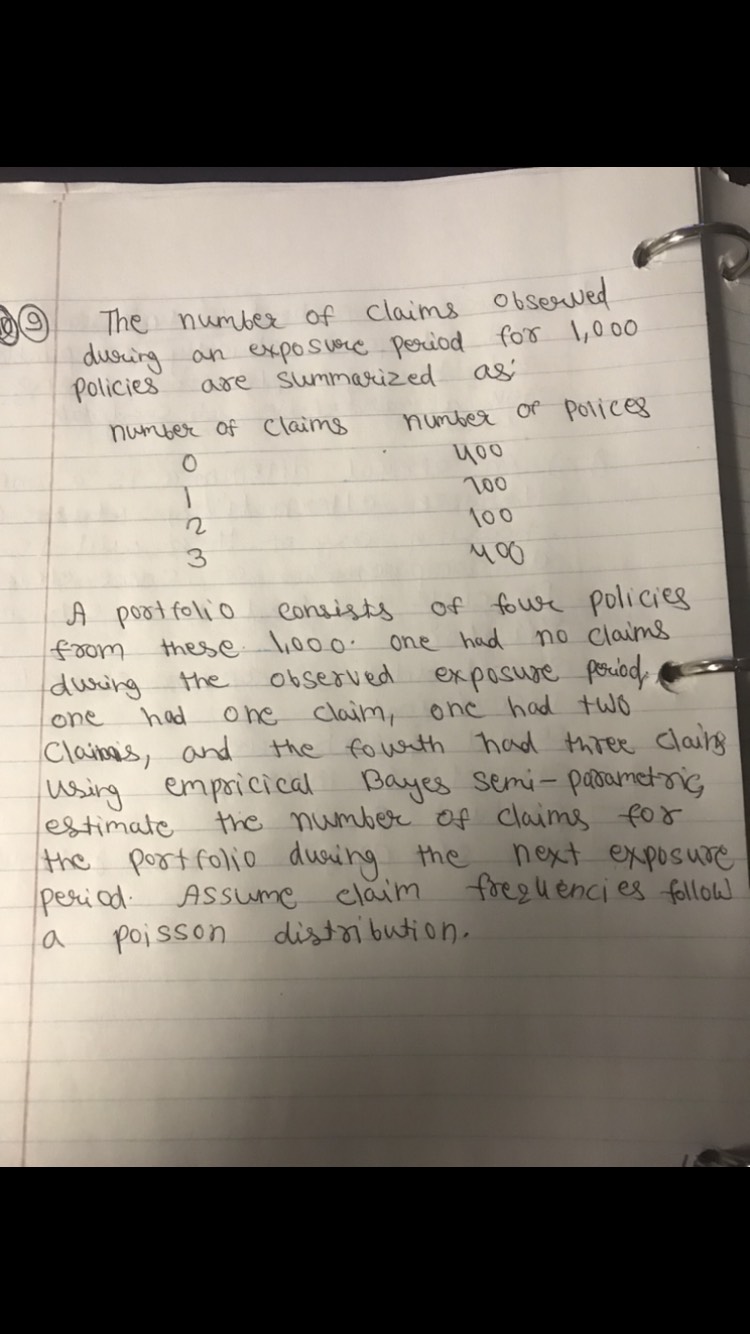 9 The number of claims observed
during an exposure period for 1,000
policies are summarized as:
number of claims number of polices
0 400
1 100
2 100
3 400
A portfolio consists of four policies
from these 1,000. one had no claims
during the observed exposure period,
one had one claim, one had two
claims, and the fourth had three claims
using empricical Bayes semi-parametric,
estimate the number of claims for
the portfolio during the next exposure
period. Assume claim frequencies follow
a poisson distribution.